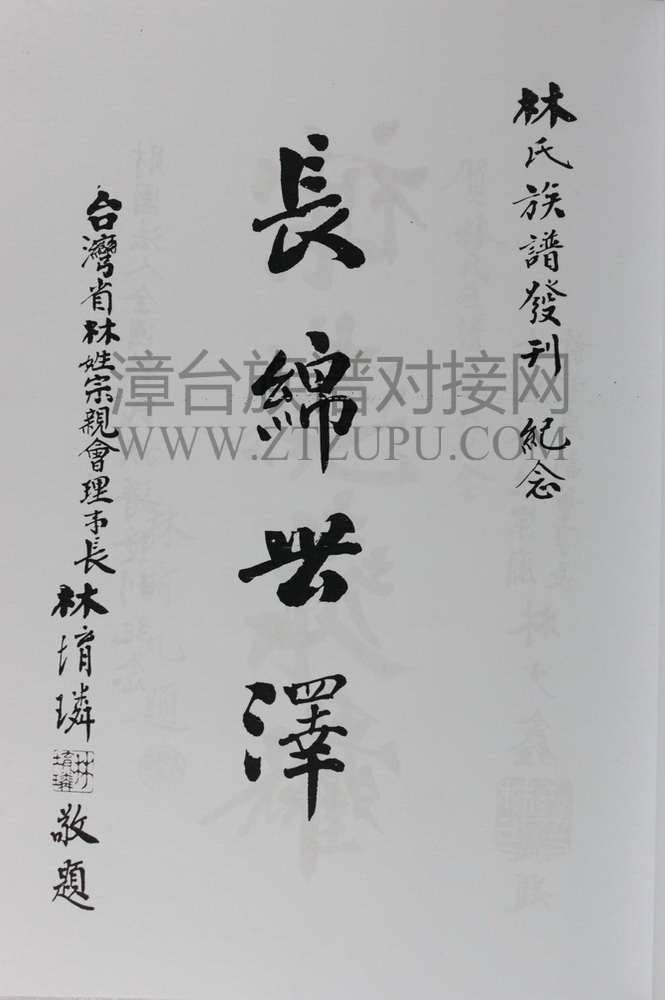 林氏族譜發刊 紀念
長綿世澤
台灣省林姓宗親會理事長 林堉璘 敬題
林堉璘
漳台族谱对接网
WWW.ZTZUPU.COM